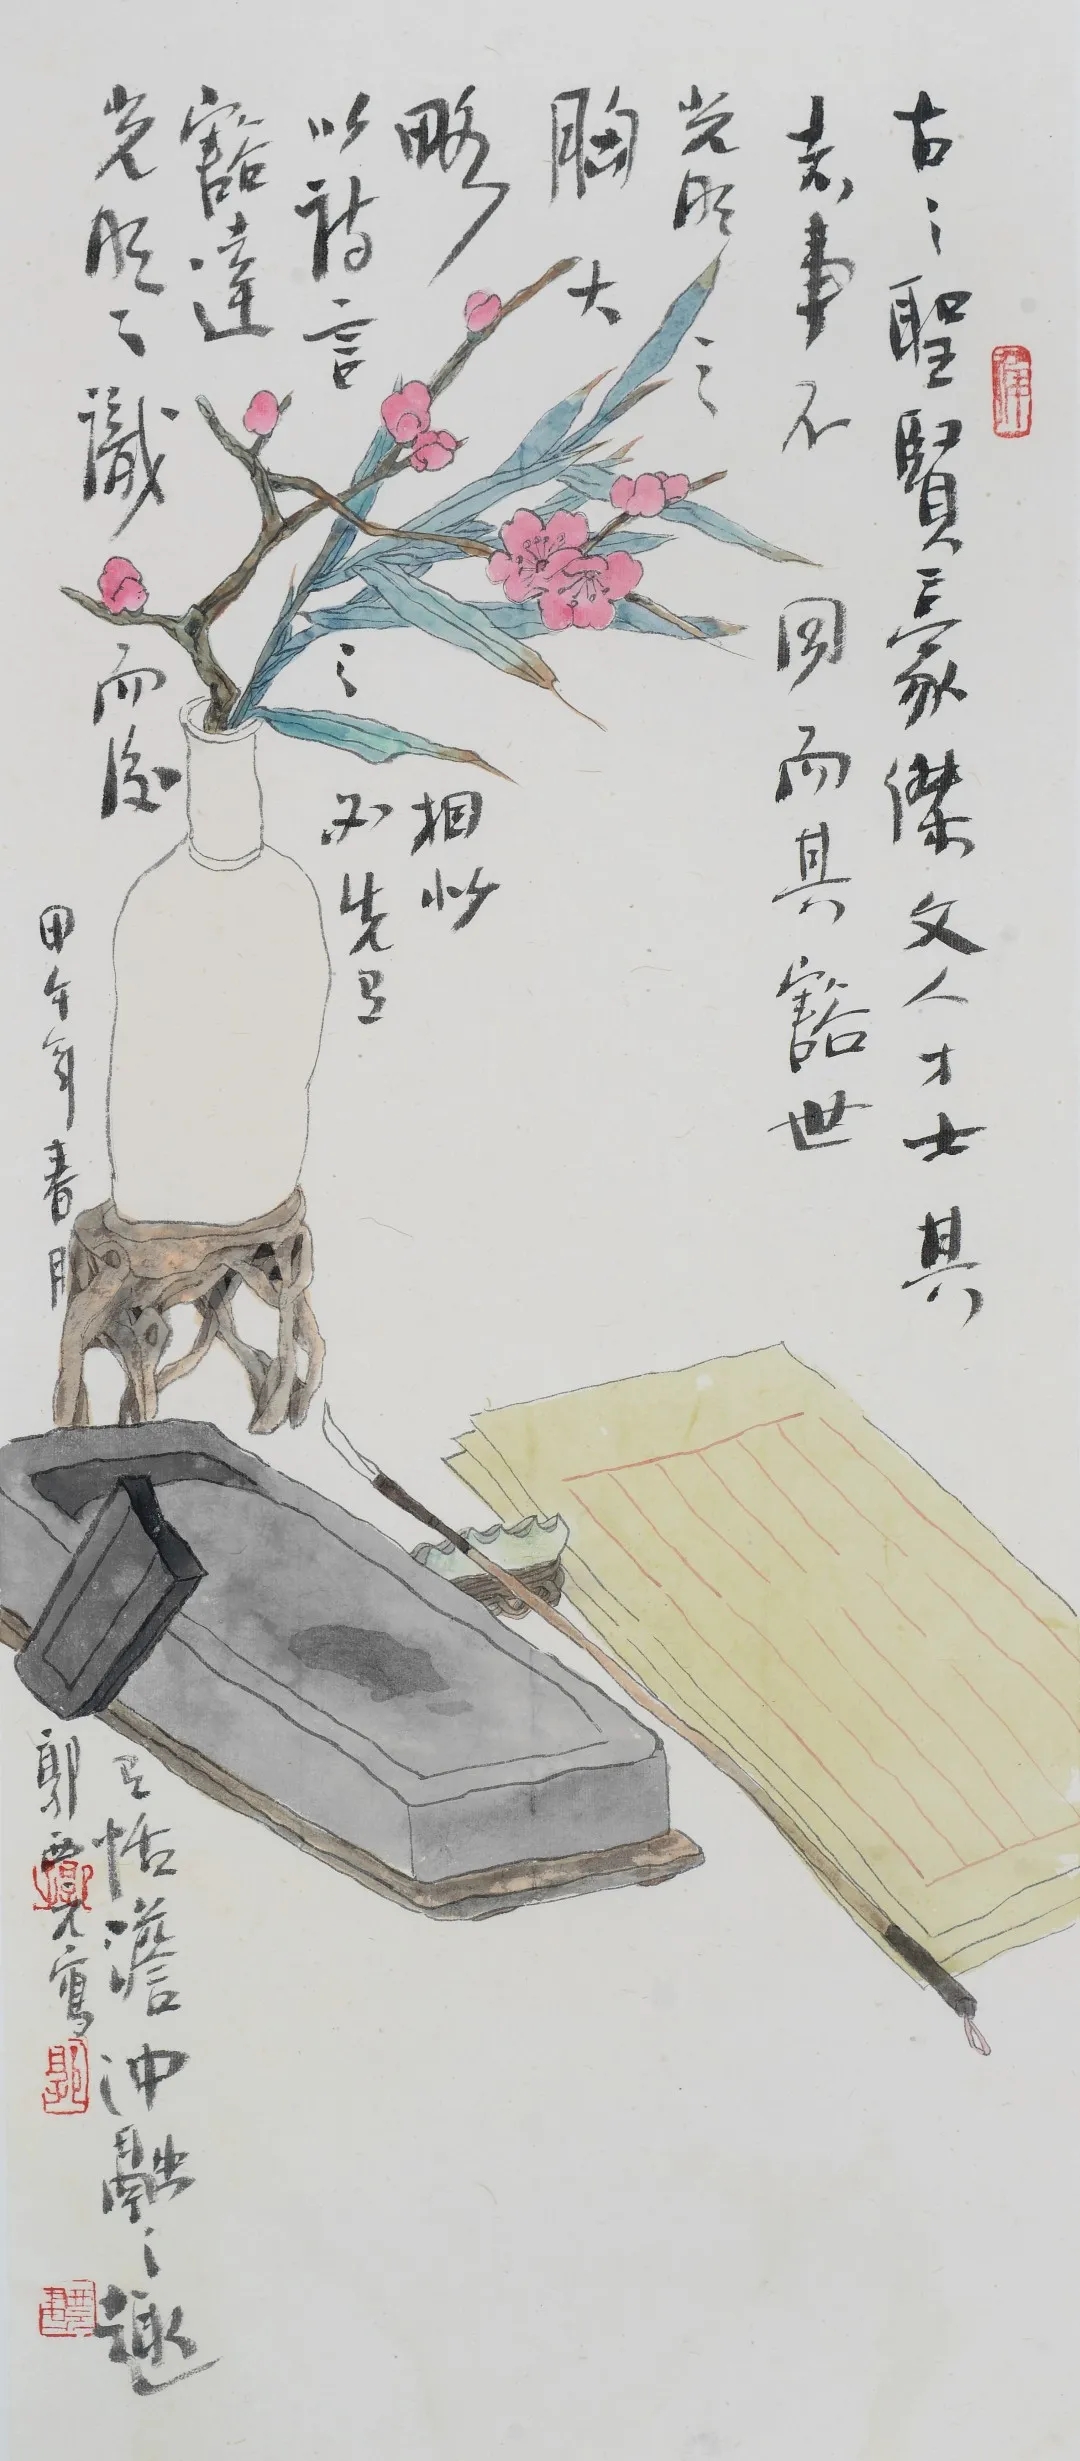 古之聖賢豪傑文人才士其
志事不同而其豁世
光明之
胸大
略相似
以詩言之必先有
豁達
光明之識而後有恬澹沖融之趣
甲午年春月郭西元寫